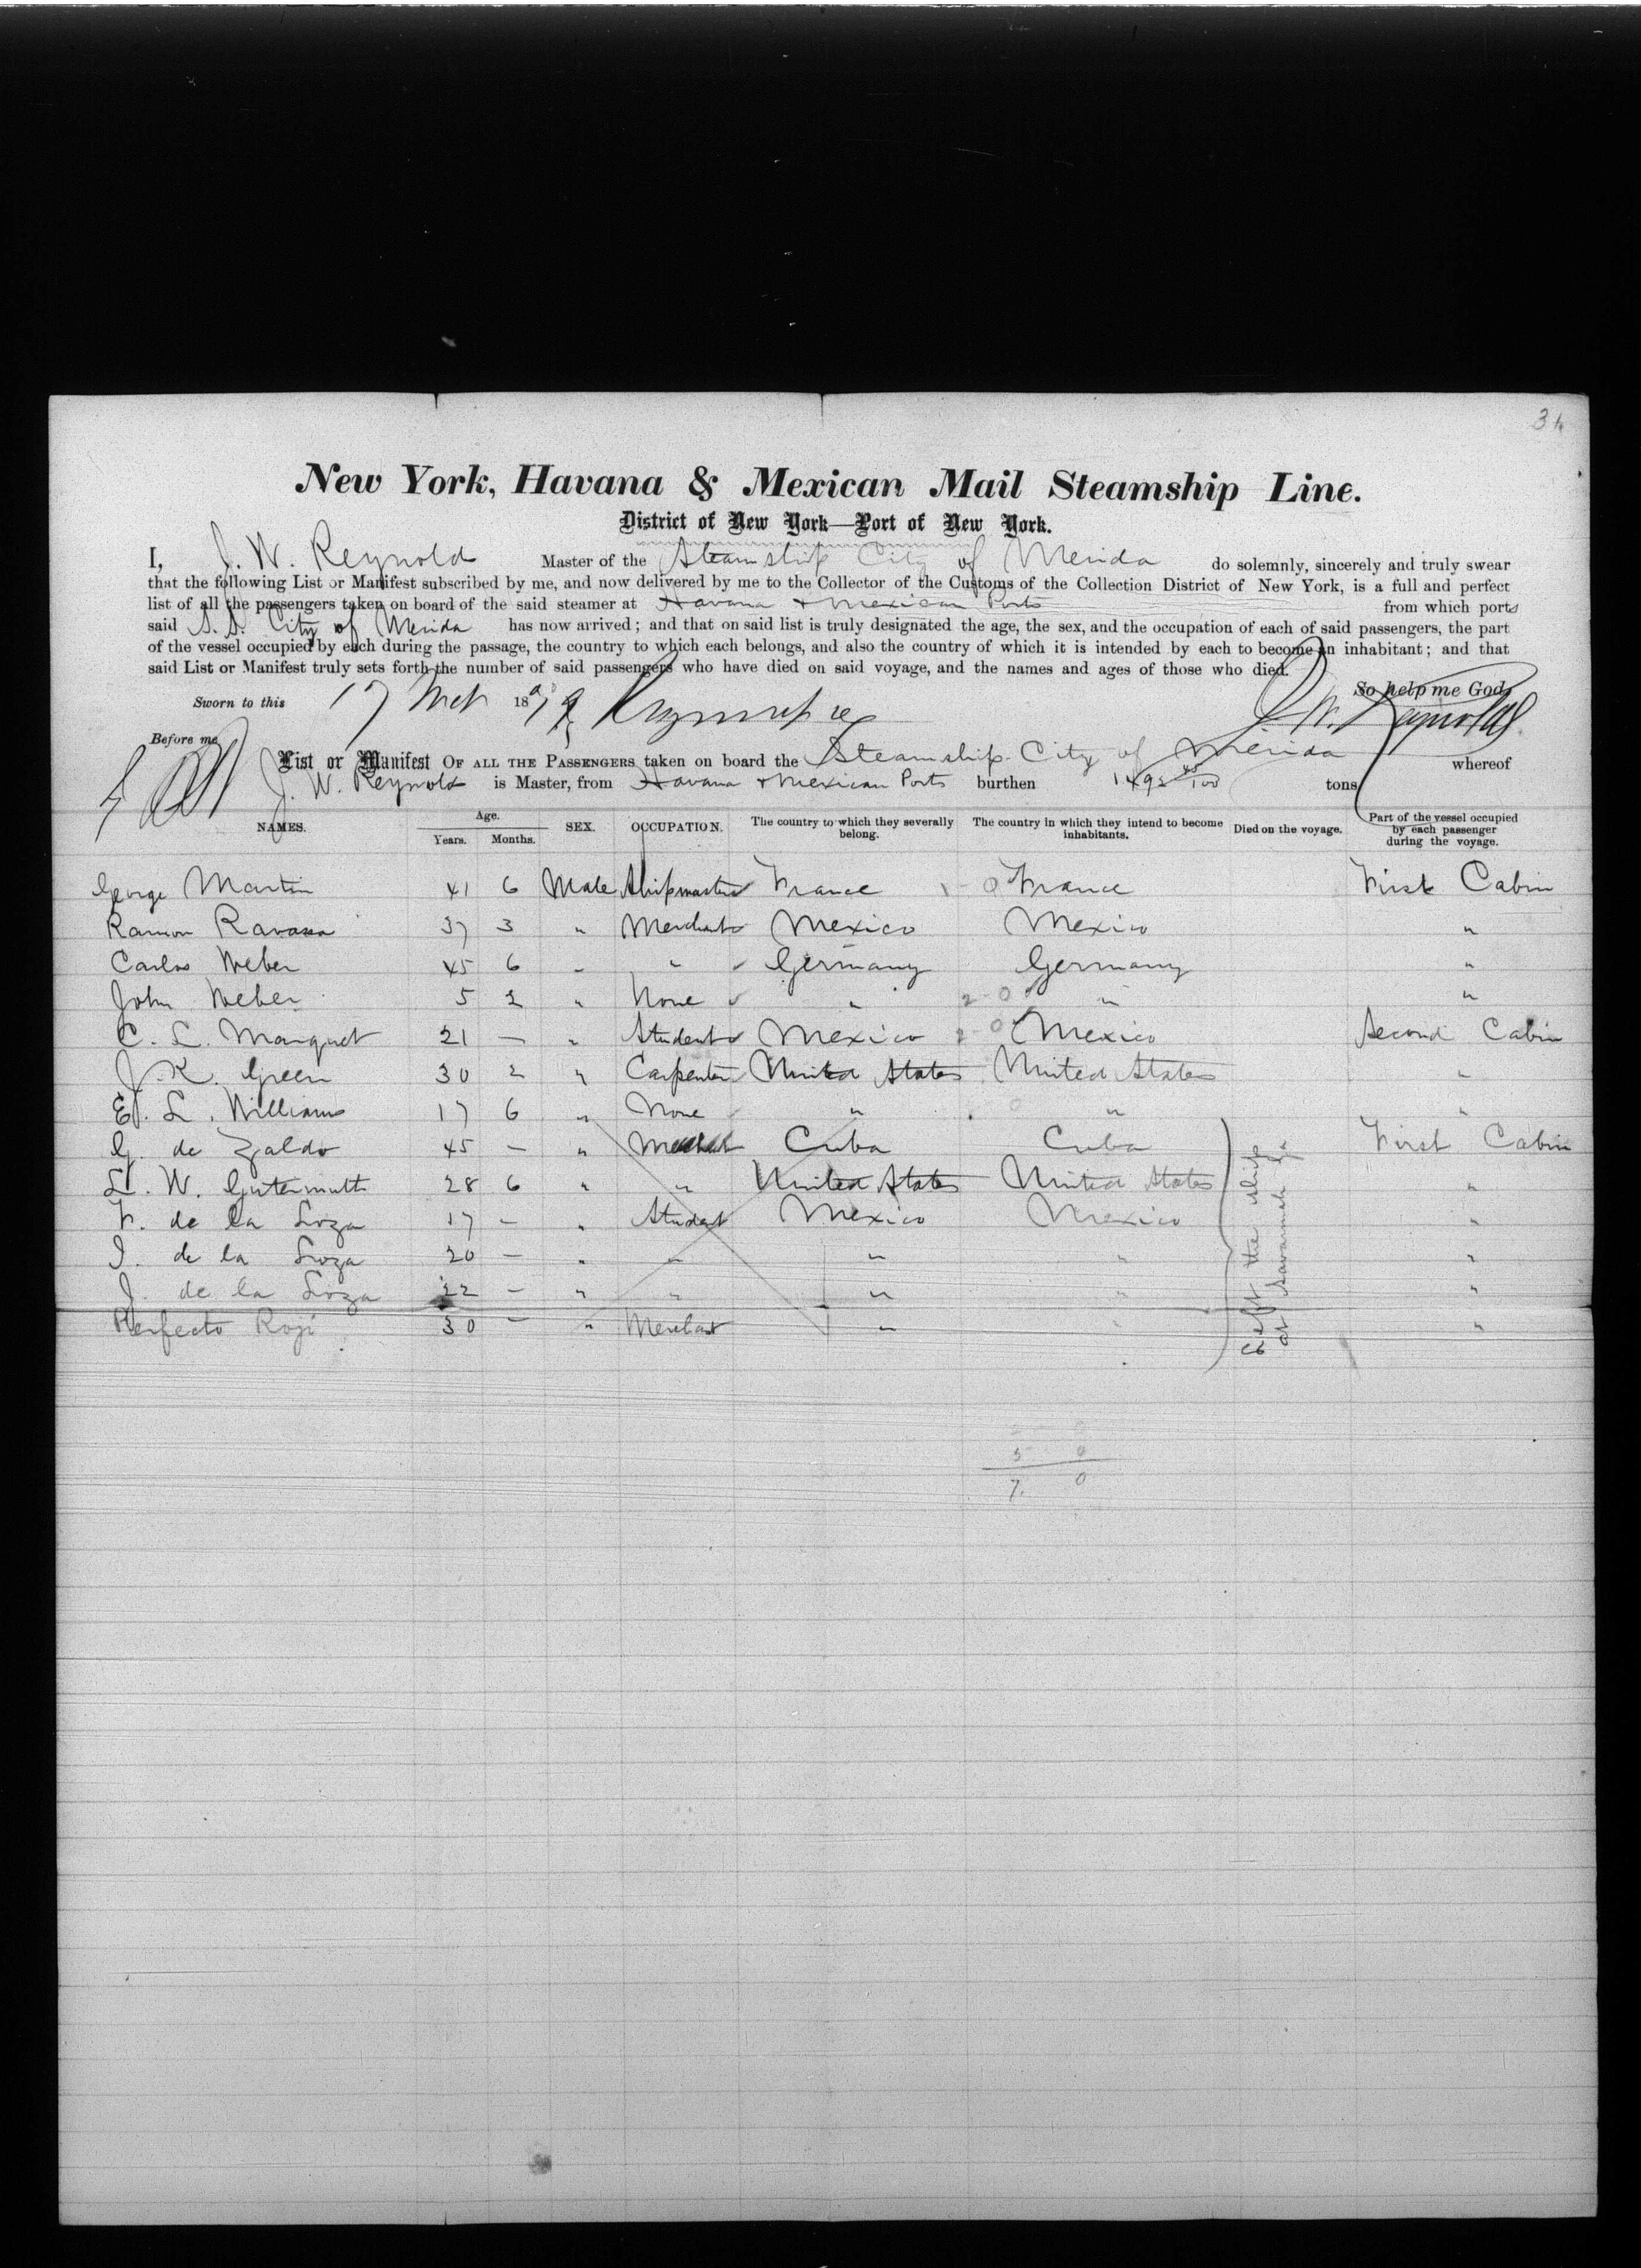 New York, Havana & Mexican Mail Steamship Line.
District of New York—Port of New York.
I, J. W. Reynolds Master of the Steamship City of Merida do solemnly, sincerely and truly swear
that the following List or Manifest subscribed by me, and now delivered by me to the Collector of the Customs of the Collection District of New York, is a full and perfect
list of all the passengers taken on board of the said steamer at Havana & Mexican Ports from which ports
said S.S. City of Merida has now arrived; and that on said list is truly designated the age, the sex, and the occupation of each of said passengers, the part
of the vessel occupied by each during the passage, the country to which each belongs, and also the country of which it is intended by each to become an inhabitant; and that
said List or Manifest truly sets forth the number of said passengers who have died on said voyage, and the names and ages of those who died.
So help me God,
Sworn to this 17 1879 J. W. Reynolds
Before me
List or Manifest OF ALL THE PASSENGERS taken on board the Steamship City of Merida whereof
J. W. Reynolds is Master, from Havana & Mexican Ports burthen tons
NAMES. Age. Years. Months. SEX. OCCUPATION. The country to which they severally belong. The country in which they intend to become inhabitants. Died on the voyage. Part of the vessel occupied by each passenger during the voyage.
George Martin 41 6 Male Shipmaster France France First Cabin
Ramon Ravassa 37 3 " Merchant Mexico Mexico "
Carlos Weber 45 6 " " Germany Germany "
John Weber 5 2 " None " " "
C. L. Marquet 21 — " Student Mexico Mexico Second Cabin
J. K. Green 30 2 " Carpenter United States United States "
E. L. Williams 17 6 " None " " "
G. de Zaldo 45 — " Cuba Cuba First Cabin
L. W. Gutermuth 28 6 " " United States United States "
F. de la Loza 17 — " Student Mexico Mexico "
I. de la Loza 20 — " " " " "
J. de la Loza 22 — " " " " "
Perfecto Roji 30 — " Merchant " " "
Left the ship
at Savannah Ga
5 0
7. 0